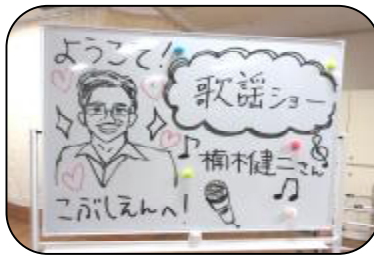 ようこそ!
歌謡ショー
楠木健二さん
こぶしえんへ!